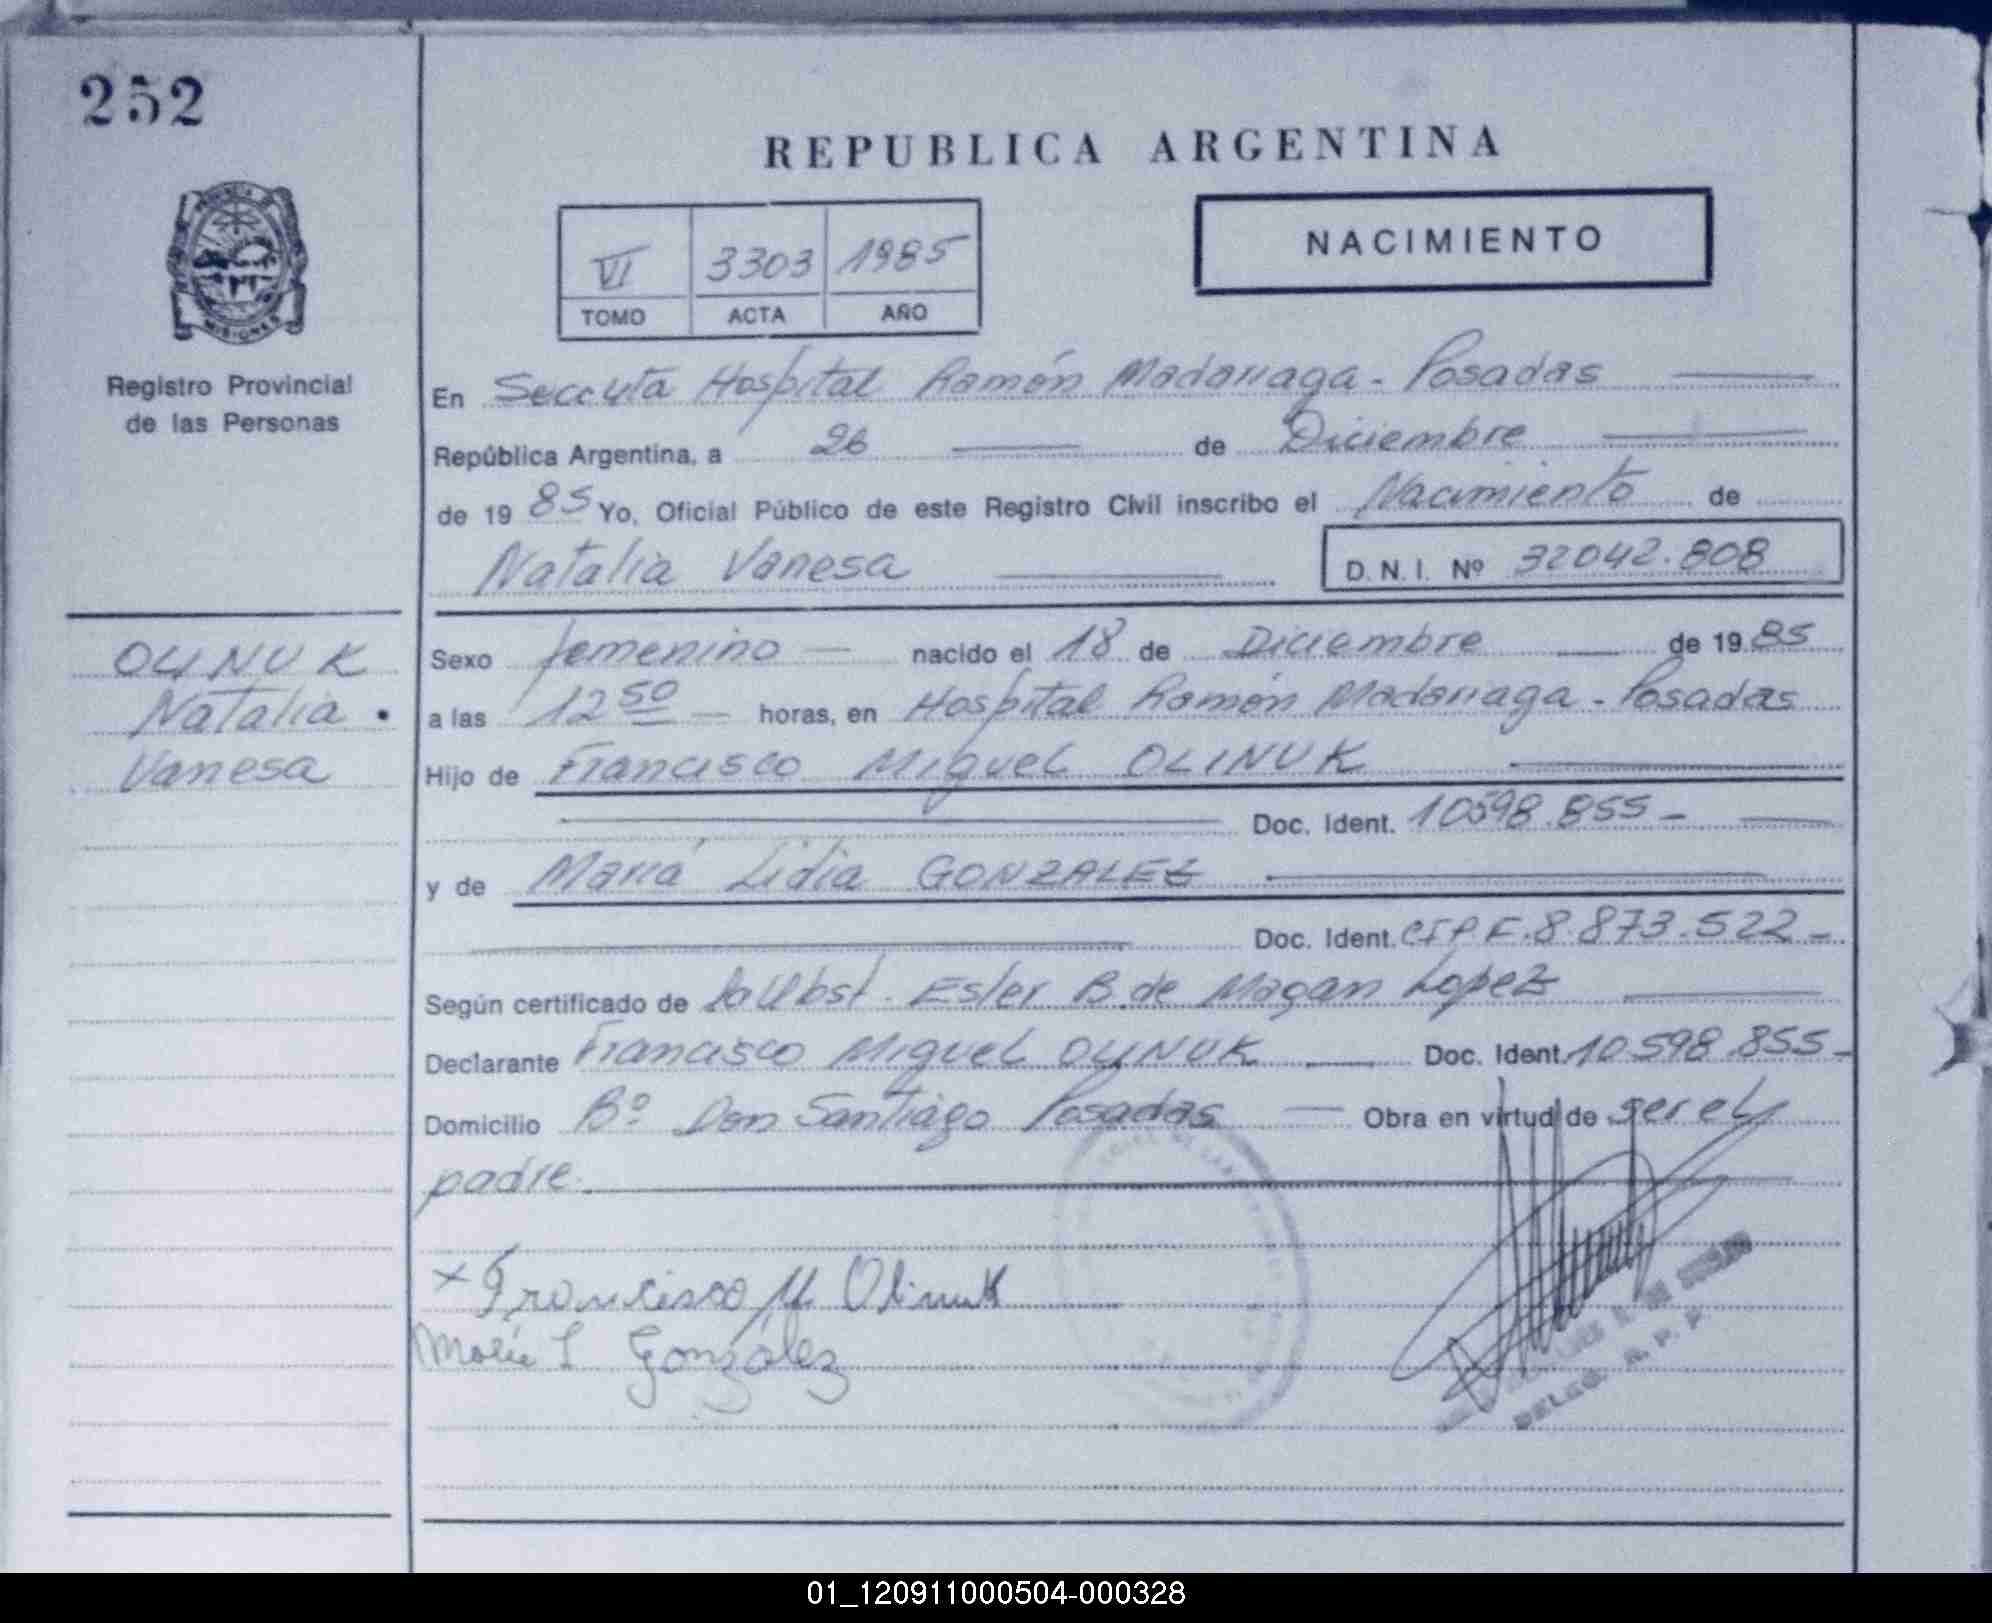 252
REPUBLICA ARGENTINA
NACIMIENTO
VI 3303 1985
TOMO ACTA AÑO
MISIONES
Registro Provincial
de las Personas
En Seccuta Hospital Ramón Madariaga - Posadas
República Argentina, a 26 de Diciembre
de 19 85 Yo, Oficial Público de este Registro Civil inscribo el Nacimiento de
Natalia Vanesa D.N.I. Nº 32042.808
OLINUK
Natalia
Vanesa
Sexo femenino nacido el 18 de Diciembre de 19 85
a las 12 50 horas, en Hospital Ramón Madariaga - Posadas
Hijo de Francisco Miguel OLINUK
Doc. Ident. 10598.855 -
y de María Lidia GONZALEZ
Doc. Ident. CIPF. 8.873.522 -
Según certificado de la Obst. Ester B. de Magan Lopez
Declarante Francisco Miguel OLINUK Doc. Ident. 10598.855 -
Domicilio Bº Don Santiago Posadas Obra en virtud de ser el
padre.
x Francisco M. Olinuk
María L Gonzalez
DELEG. R. P. P.
01_120911000504-000328